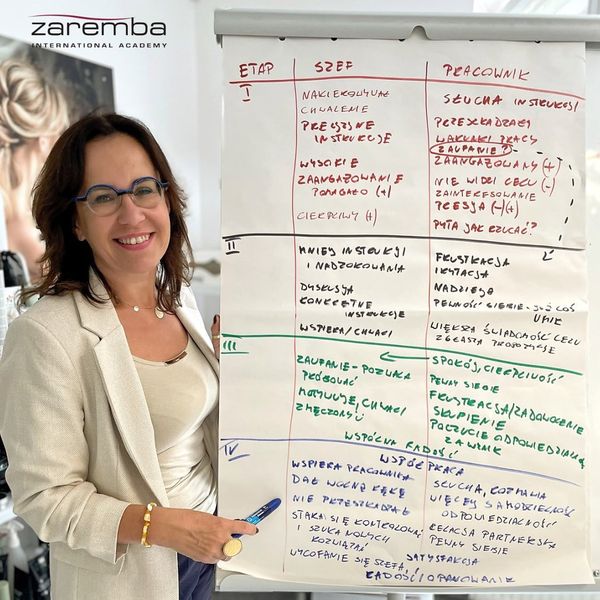 zaremba
INTERNATIONAL ACADEMY
ETAP SZEF PRACOWNIK
I
NAKIEROWYWAŁ
CHWALENIE
PRECYZYJNE
INSTRUKCJE
WYSOKIE
ZAANGAŻOWANIE
POMAGAŁO (+)
CIERPLIWY (+)
SŁUCHA INSTRUKCJI
PRZESZKADZAŁY
WARUNKI PRACY
ZAUFANIE?
ZAANGAŻOWANY (+)
NIE WIDZI CELU (-)
ZAINTERESOWANIE
PRESJA (-)(+)
PYTA JAK RZUCAĆ?
II
MNIEJ INSTRUKCJI
I NADZOROWANIA
DYSKUSJA
KONKRETNE
INSTRUKCJE
WSPIERA/CHWALI
FRUSTRACJA
IRYTACJA
NADZIEJA
PEWNOŚĆ SIEBIE - JUŻ COŚ
UMIE
WIĘKSZA ŚWIADOMOŚĆ CELU
ZGŁASZA PROPOZYCJE
III
ZAUFANIE - POZWALA
PRÓBOWAĆ
MOTYWUJE, CHWALI
ZMĘCZONY
SPOKÓJ, CIERPLIWOŚĆ
PEWNY SIEBIE
FRUSTRACJA/ZADOWOLENIE
SKUPIENIE
POCZUCIE ODPOWIEDZIALN.
ZA WYNIK
WSPÓLNA RADOŚĆ
IV
WSPÓŁPRACA
WSPIERA PRACOWNIKA
DAŁ WOLNĄ RĘKĘ
NIE PRZESZKADZAŁ
STARA SIĘ KONTROLOWAĆ
I SZUKA NOWYCH
ROZWIĄZAŃ
WYCOFANIE SIĘ SZEFA,
SŁUCHA, ROZMAWIA
WIĘCEJ SAMODZIELNOŚCI
ODPOWIEDZIALNOŚCI
RELACJA PARTNERSKA
PEWNY SIEBIE
SATYSFAKCJA
RADOŚĆ/OPANOWANIE